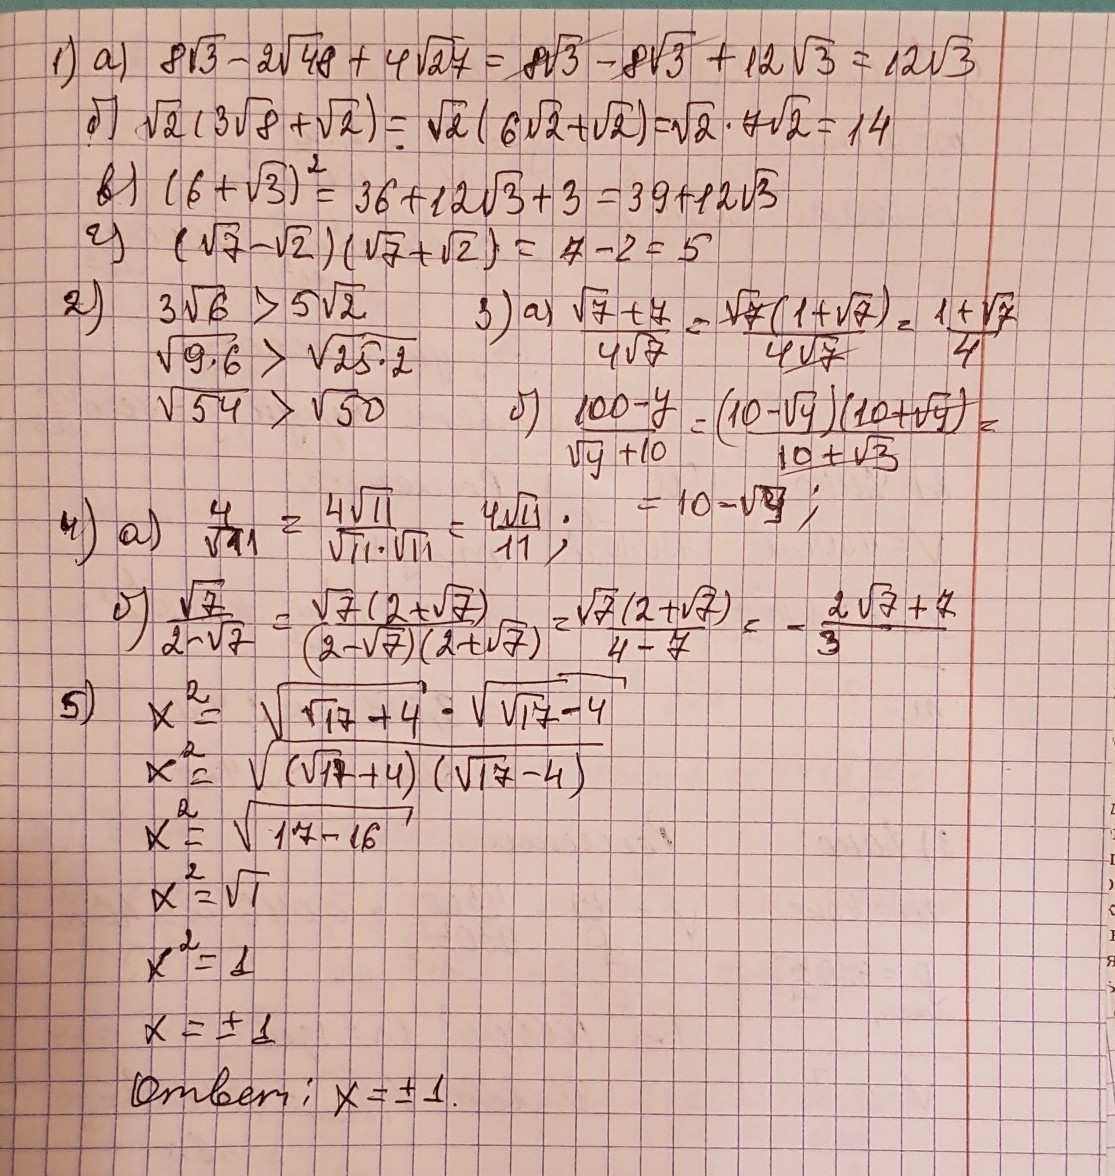 1) а) 8√3 − 2√48 + 4√27 = 8√3 − 8√3 + 12√3 = 12√3
б) √2(3√8 + √2) = √2(6√2 + √2) = √2 · 7√2 = 14
в) (6 + √3)² = 36 + 12√3 + 3 = 39 + 12√3
г) (√7 − √2)(√7 + √2) = 7 − 2 = 5
2) 3√6 > 5√2
√(9·6) > √(25·2)
√54 > √50
3) а) (√7 + 7)/(4√7) = √7(1 + √7)/(4√7) = (1 + √7)/4
б) (100 − y)/(√y + 10) = (10 − √y)(10 + √y)/(10 + √3) =
= 10 − √y;
4) а) 4/√11 = 4√11/(√11·√11) = 4√11/11;
б) √7/(2 − √7) = √7(2 + √7)/((2 − √7)(2 + √7)) = √7(2 + √7)/(4 − 7) = −(2√7 + 7)/3
5) x² = √(√17 + 4) · √(√17 − 4)
x² = √((√17 + 4)(√17 − 4))
x² = √(17 − 16)
x² = √1
x² = 1
x = ± 1
Ответ: x = ± 1.